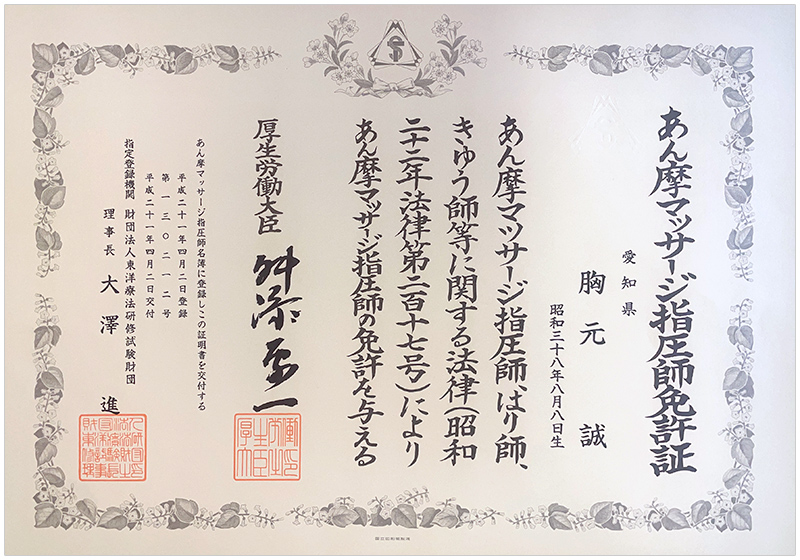 あん摩マッサージ指圧師免許証
愛知県
胸元 誠
昭和三十八年八月八日生
あん摩マッサージ指圧師、はり師、
きゆう師等に関する法律(昭和
二十二年法律第二百十七号)により
あん摩マッサージ指圧師の免許を与える
厚生労働大臣 舛添要一
あん摩マッサージ指圧師名簿に登録しこの証明書を交付する
平成二十一年四月二日登録
第一三〇二一二号
平成二十一年四月二日交付
指定登録機関 財団法人東洋療法研修試験財団
理事長 大澤 進